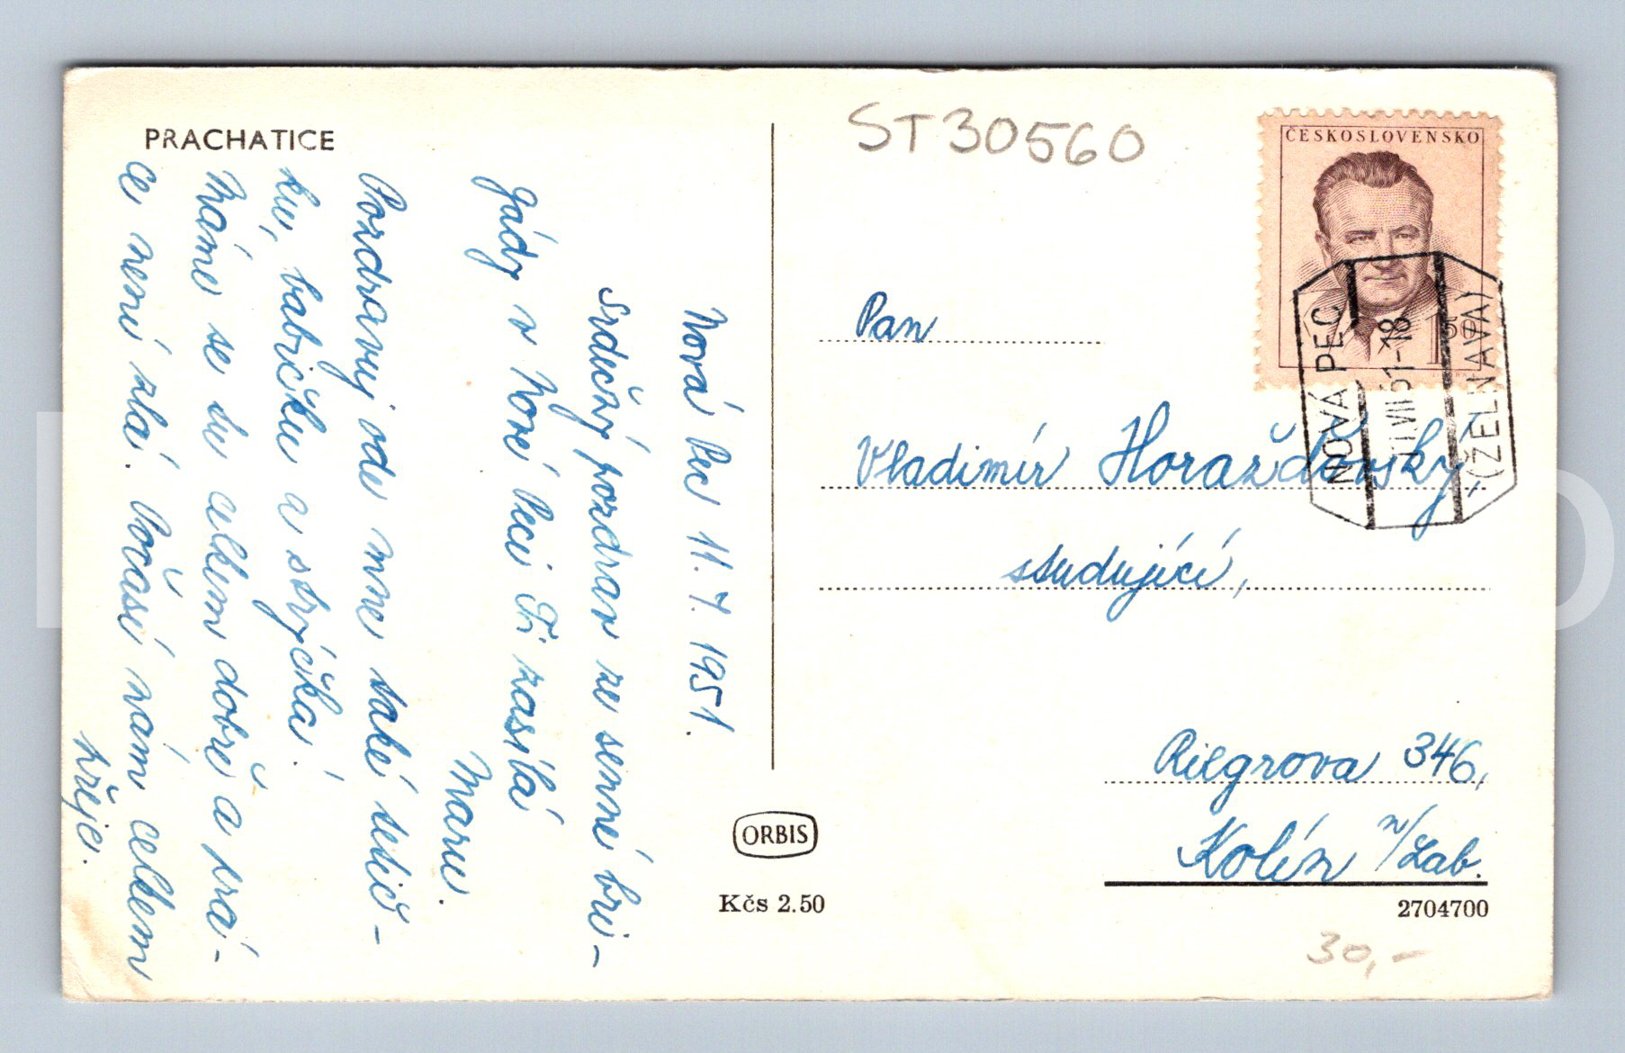 PRACHATICE
Nová Pec 11. 7. 1951.
Srdečný pozdrav ze senné bri-
gády v Nové Peci Ti zasílá
Maru.
Pozdravuj ode mne také tetič-
ku, babičku a strýčka!
Máme se tu celkem dobře a prá-
ce není zlá. Počasí nám celkem
přeje.
ORBIS
Kčs 2.50
ST30560
ČESKOSLOVENSKO
NOVÁ PEC
11.VII.51-18
(ŽELNAVA)
Pan
Vladimír Horažďovský
studující,
Riegrova 346,
Kolín n/Lab.
2704700
30,-